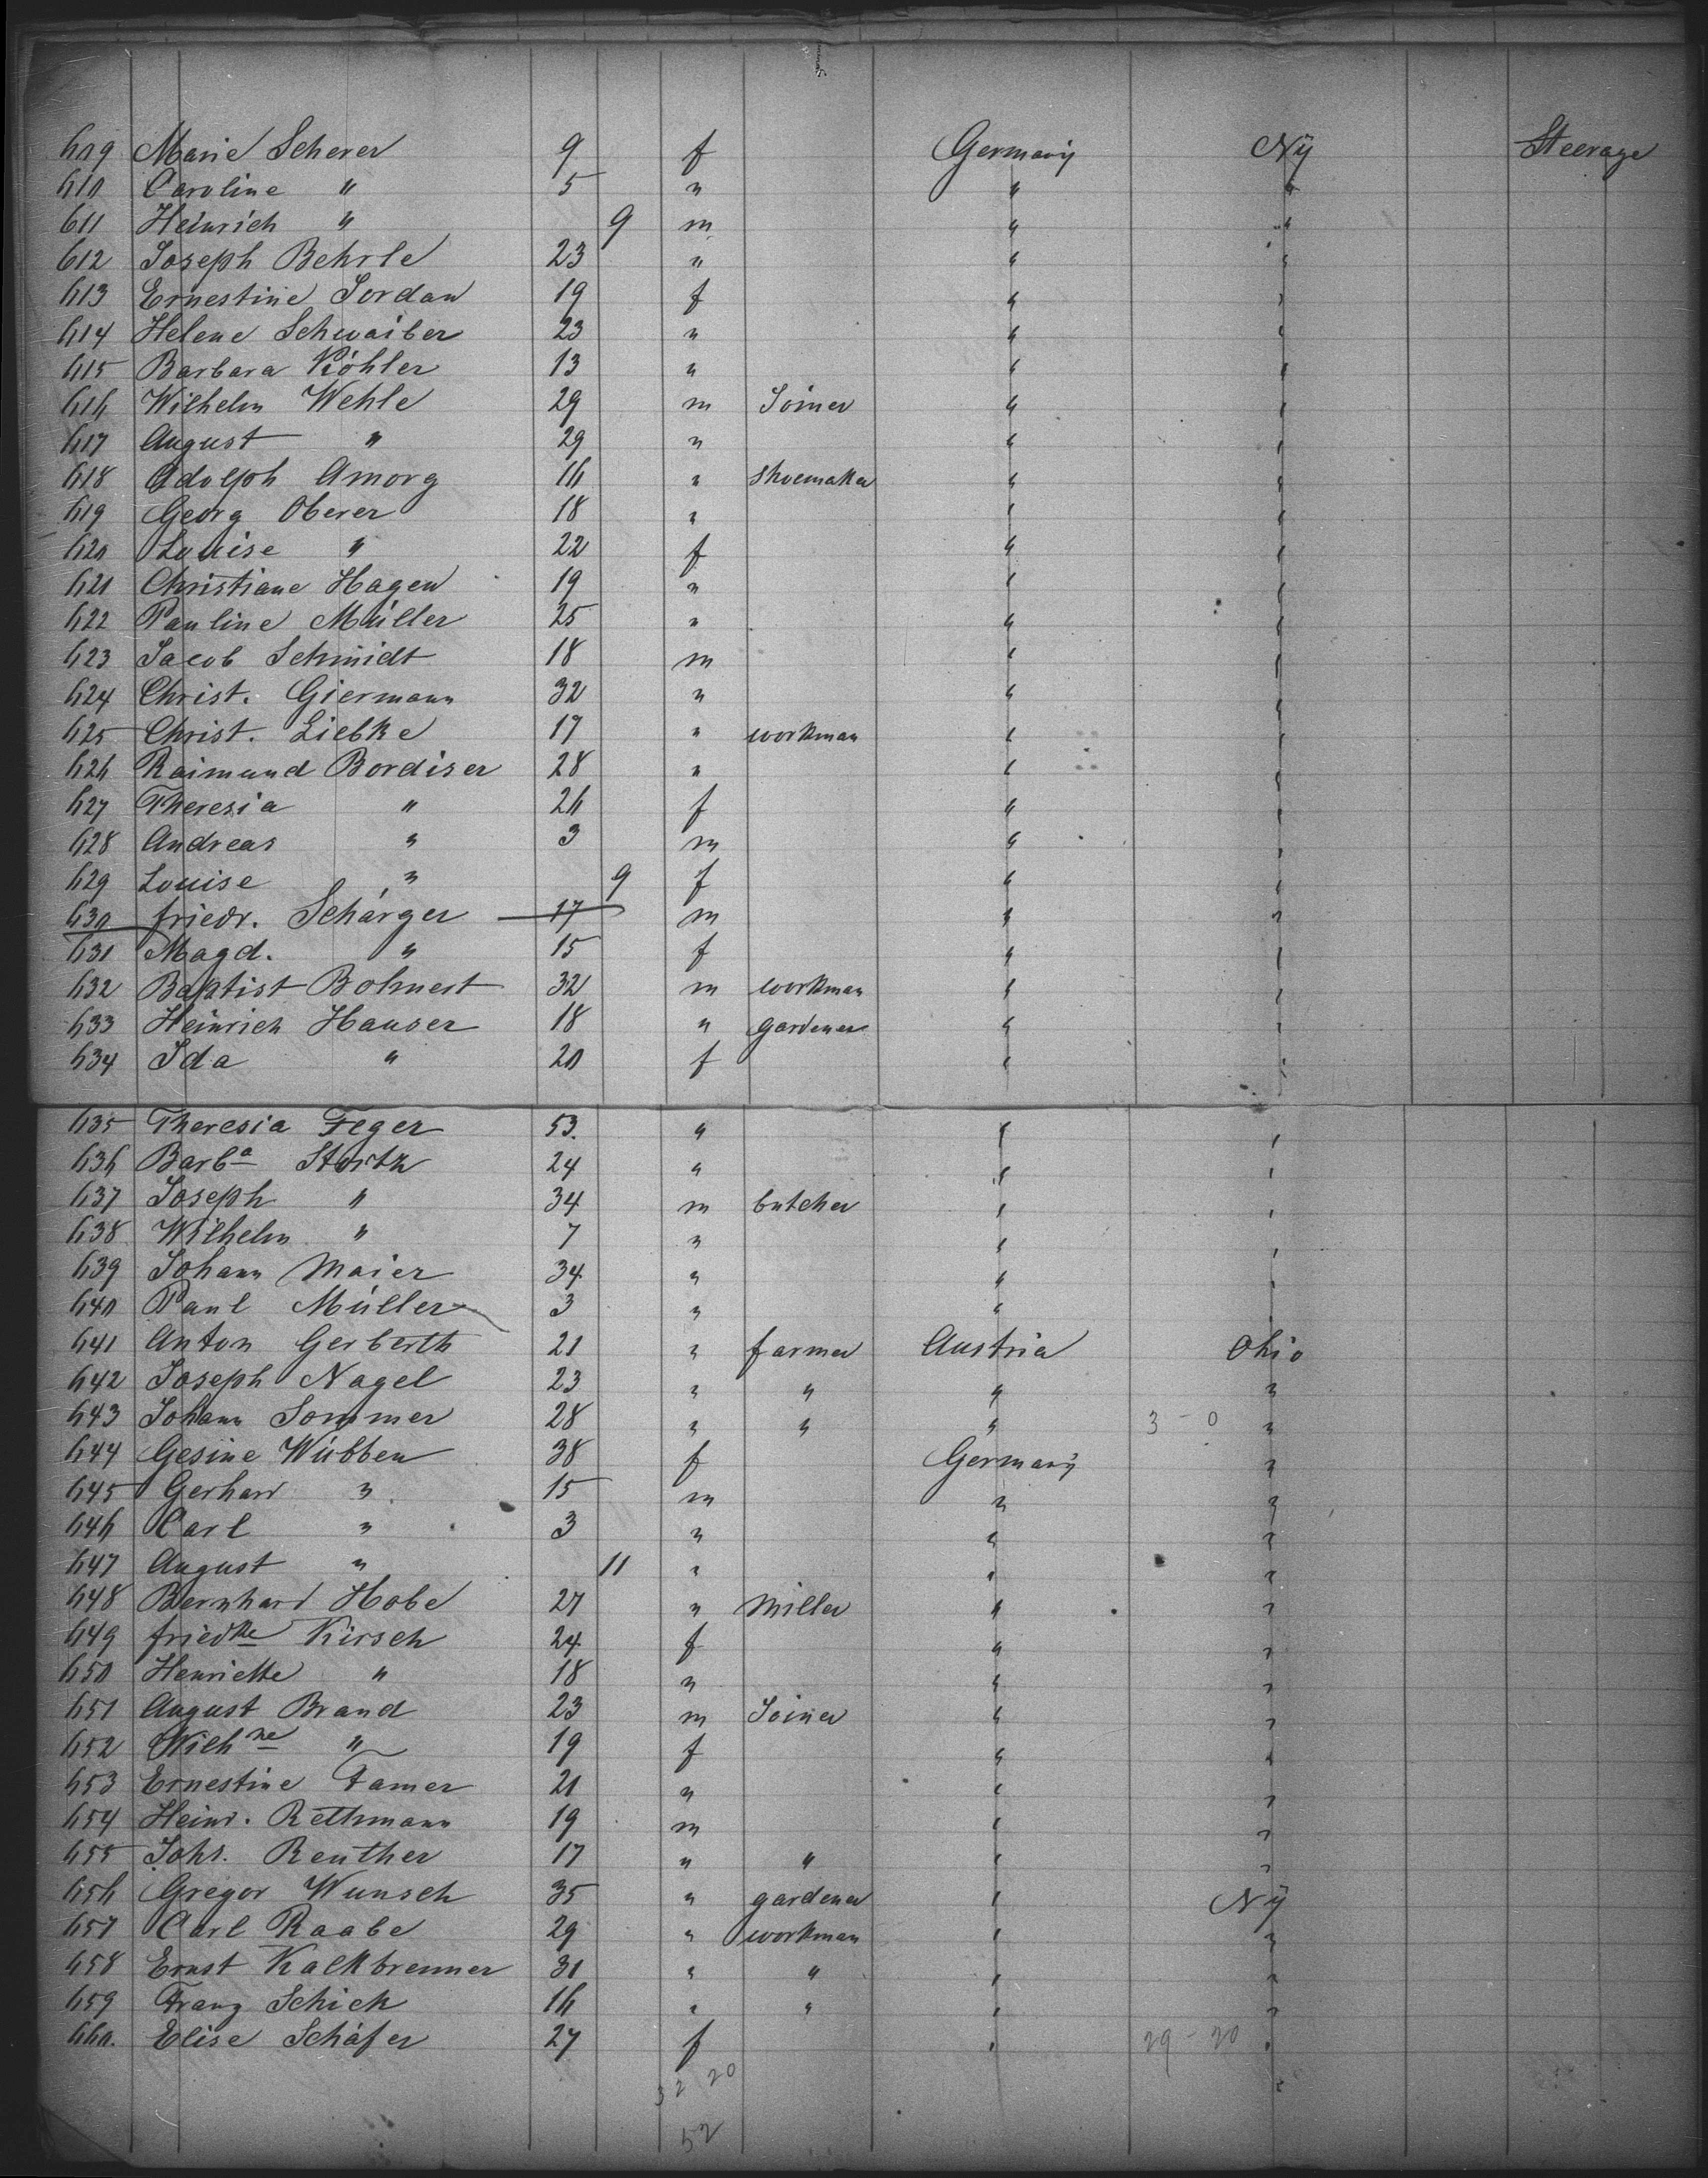 609 Marie Scherer 9 f Germany Ny Steerage
610 Caroline " 5 " " "
611 Heinrich " 9 m " "
612 Joseph Behrle 23 " " "
613 Ernestine Jordan 19 f " "
614 Helene Schwaiber 23 " " "
615 Barbara Köhler 13 " " "
616 Wilhelm Wehle 29 m Joiner " "
617 August " 29 " " "
618 Adolph Amorg 16 " shoemaker " "
619 Georg Oberer 18 " " "
620 Louise " 22 f " "
621 Christiane Hagen 19 " " "
622 Pauline Müller 25 " " "
623 Jacob Schmidt 18 m " "
624 Christ. Giermann 32 " " "
625 Christ. Liebke 17 " workman " "
626 Raimund Bordiser 28 " " "
627 Theresia " 26 f " "
628 Andreas " 3 m " "
629 Louise " 9 f " "
630 friedr. Schärger 17 m " "
631 Magd. " 15 f " "
632 Baptist Bohnert 32 m workman " "
633 Heinrich Hauser 18 " gardener " "
634 Ida " 20 f " "
635 Theresia Feger 53. " " "
636 Barba Stortz 24 " " "
637 Joseph " 34 m butcher " "
638 Wilhelm " 7 " " "
639 Johann Maier 34 " " "
640 Paul Müller 3 " "
641 Anton Gerberth 21 " farmer Austria Ohio
642 Joseph Nagel 23 " " " "
643 Johann Sommer 28 " " " 3 - 0 "
644 Gesine Wübben 38 f Germany "
645 Gerhard " 15 m " "
646 Carl " 3 " " "
647 August " 11 " " "
648 Bernhard Hobe 27 " Miller " "
649 friedke Kirsch 24 f " "
650 Henriette " 18 " " "
651 August Brand 23 m Joiner " "
652 Wilhne " 19 f " "
653 Ernestine Famer 20 " " "
654 Heinr. Rethmann 19 m " "
655 Johs. Reuther 17 " " " "
656 Gregor Wunsch 35 " gardener " Ny
657 Carl Raabe 29 " workman " "
658 Ernst Kalkbrenner 30 " " " "
659 Franz Schick 16 " " " "
660. Elise Schäfer 27 f " 29 - 20 "
32 20
52